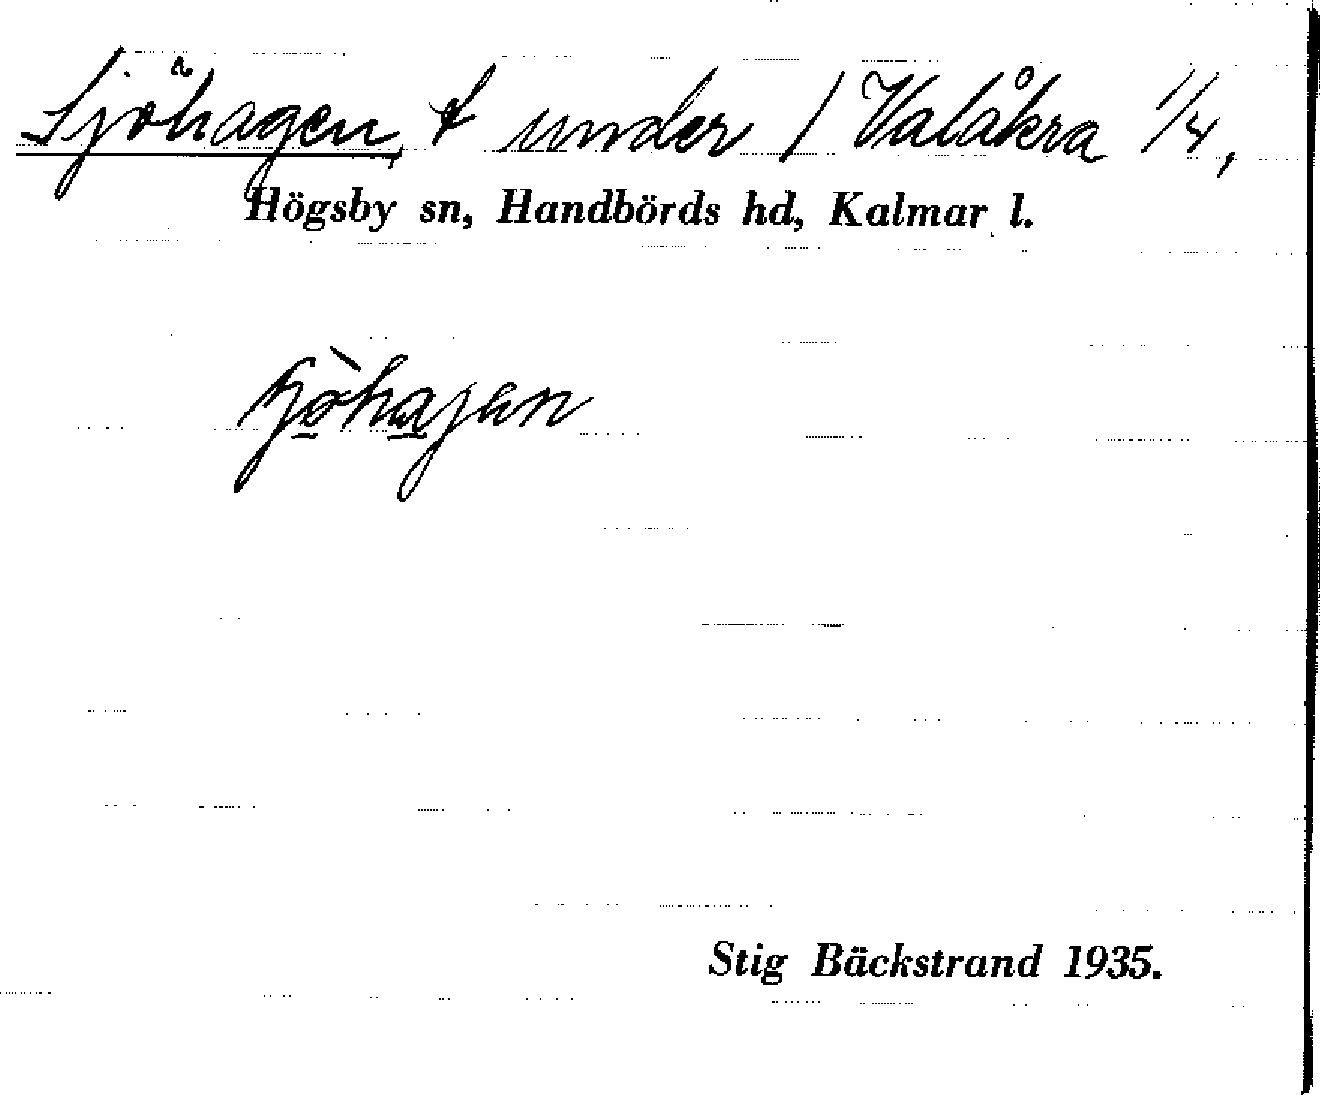 Sjöhagen, t under / Valåkra 1/4,
Högsby sn, Handbörds hd, Kalmar l.
Stig Bäckstrand 1935.